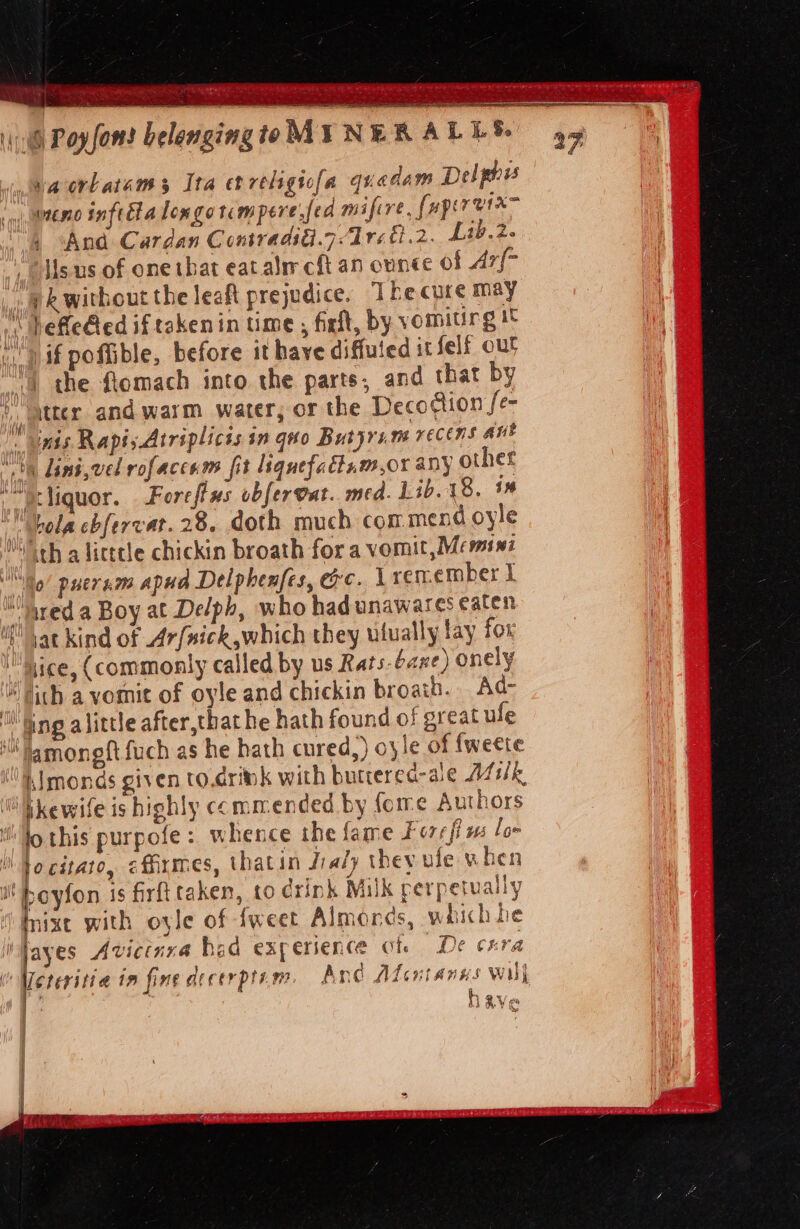 Poyſons belonging to MINERALLS. 37
Ita et religioſa quadam Delphis
infecta longo tempore, ſed miſire, ſupervix-
And Cardan Contradict. 7. Tract. 2. Lib. 2.
us of one that eat almoſt an ounce of Arſ-
without the leaſt prejudice. The cure may
effected if taken in time, firſt, by vomiting it
if poſſible, before it have diffuſed it ſelf out
the ſtomach into the parts, and that by
and warm water, or the Decoction ſe-
Rapi, Atriplicis in quo Butyrum recens aut
lini, vel roſaceum fit liquefactum, or any other
liquor. Foreſtus obſervat. med. Lib. 18. in
obſervat. 28. doth much commend oyle
a litttle chickin broath for a vomit, Memini
puerum apud Delphenſes, &c. I remember I
a Boy at Delph, who had unawares eaten
kind of Arſnick, which they uſually lay for
(commonly called by us Rats-bane) onely
a vomit of oyle and chickin broath. Ad-
a little after, that he hath found of great uſe
amongſt ſuch as he hath cured,) oyle of ſweete
given to drink with buttered-ale Milk
is highly commended by ſome Authors
this purpoſe: whence the ſame Foreſtus lo-
citato, affirmes, that in Italy they uſe when
poyſon is firſt taken, to drink Milk perpetually
mixt with oyle of ſweet Almonds, which he
Avicenna had experience of. De cura
in fine decerptum. And Montanus will
have